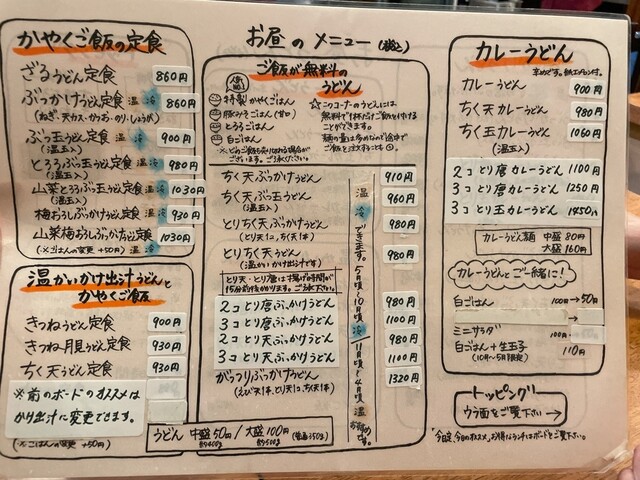 お昼のメニュー(税込)
かやくご飯の定食
ざるうどん定食 860円
ぶっかけうどん定食 温 冷 860円
(ねぎ・天カス・かつお・のり・しょうが)
ぶっ玉うどん定食 温 冷 900円
(温玉入)
とろろぶっ玉うどん定食 温 冷 980円
(温玉入)
山菜とろろぶっ玉うどん定食 温 冷 1030円
(温玉入)
梅おろしぶっかけうどん定食 温 冷 930円
山菜梅おろしぶっかけうどん定食 1030円
(※ごはんの変更+50円) 温 冷
温かいかけ出汁うどんとかやくご飯
きつねうどん定食 900円
きつね月見うどん定食 930円
ちく天うどん定食 930円
※前のボードのオススメは
かけ出汁に変更できます。
(※ごはんの変更 +50円)
ご飯が無料のうどん
人気No.1
特製かやくごはん
豚みそごはん(甘口)
とろろごはん
白ごはん
☆このコーナーのうどんには
無料で1杯だけご飯を付ける
ことができます。
麺の量は多めなので途中で
ご飯を注文することも
ございます。ご了承ください
ちく天ぶっかけうどん 910円
ちく天ぶっ玉うどん 960円
(温玉入)
とり天ぶっかけうどん 980円
(とり天1コ、ちく天1本)
とりちく天うどん 980円
(温かいかけ出汁です)
とり天・とり唐は揚げ時間が
15分前後かかります。ご了承下さい。
2コ とり唐ぶっかけうどん 980円
3コ とり唐ぶっかけうどん 1100円
2コ とり天ぶっかけうどん 980円
3コ とり天ぶっかけうどん 1100円
がっつりぶっかけうどん 1320円
(えび天1本、とり天1コ、ちく天1本)
温 冷 できます。
5月頃~10月頃 冷
11月頃~4月頃 温
お薦めです。
うどん 中盛50円/大盛100円
カレーうどん
カレーうどん 900円
ちく天カレーうどん 980円
ちく玉カレーうどん 1060円
(温玉入)
2コ とり唐カレーうどん 1100円
3コ とり唐カレーうどん 1250円
3コ とり玉カレーうどん 1450円
カレーうどん麺 中盛 80円
大盛 160円
カレーうどんとご一緒に!
白ごはん 100円→50円
ミニサラダ 100円
白ごはん+生玉子 110円
(10月~5月限定)
トッピング
ウラ面をご覧下さい→
「今日定、今日のオススメ」お得なランチはボードをご覧下さい。